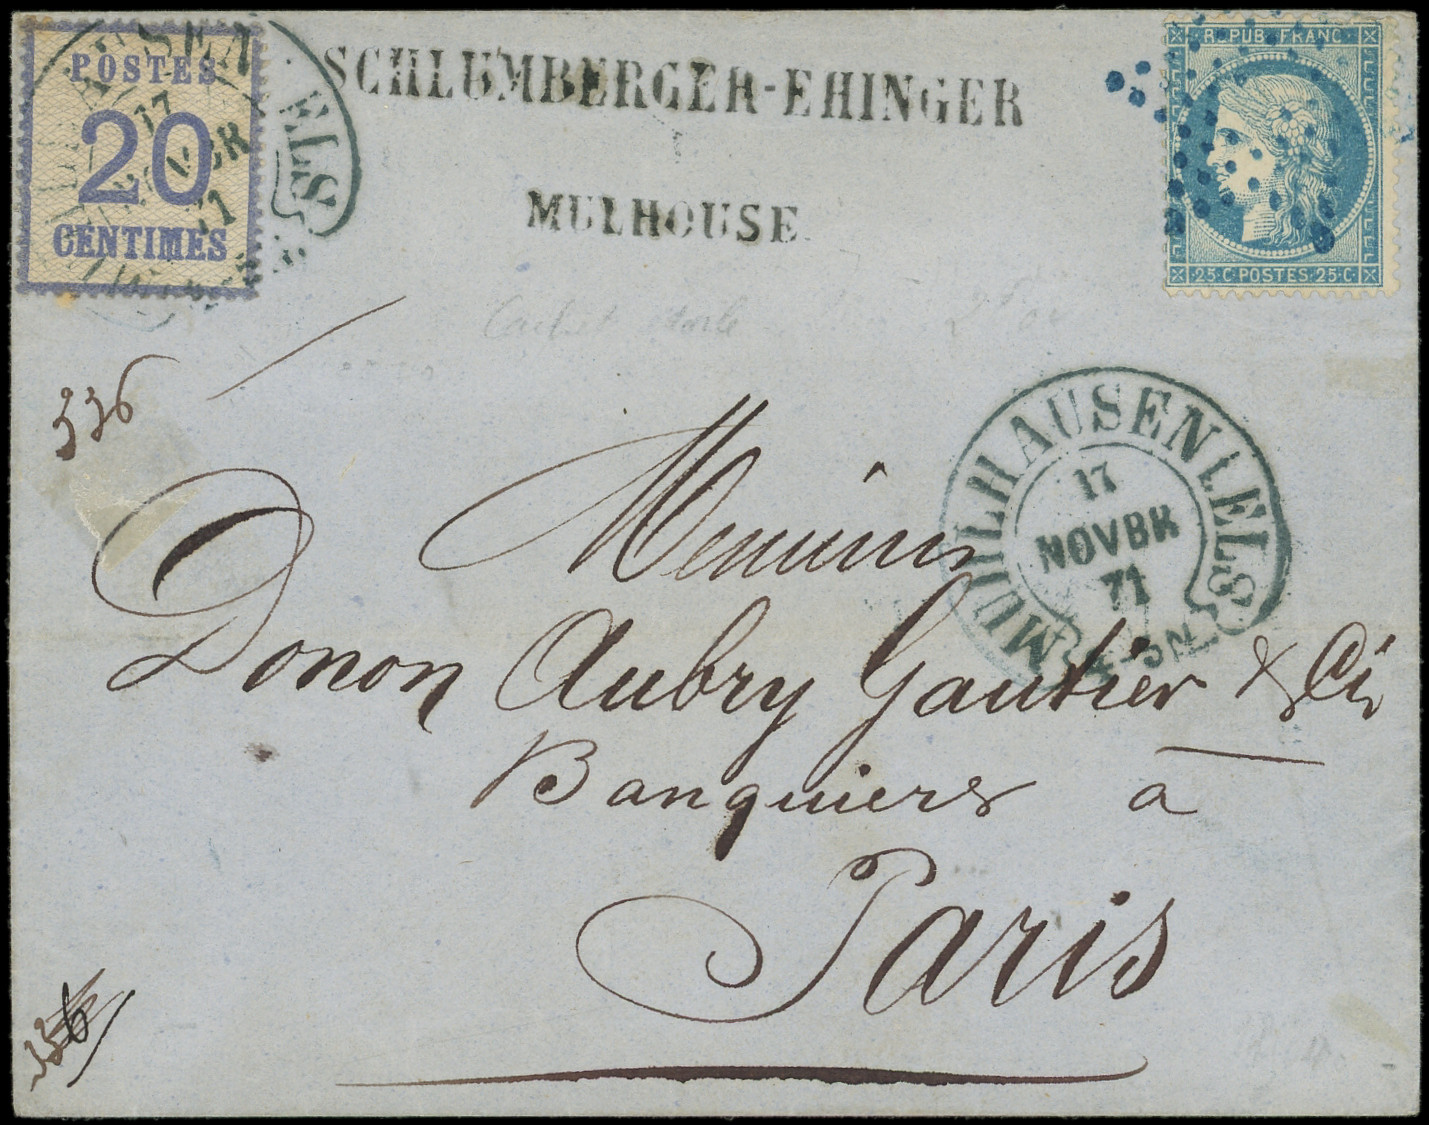 POSTES
20
CENTIMES
SCHLUMBERGER-EHINGER
MULHOUSE
REPUB. FRANC.
25·C·POSTES·25·C
Cachet étoile
336
MUHLHAUSEN I. ELS.
17
NOVBR
71
Messieurs
Donon Aubry Gautier & Cie
Banquiers à
Paris